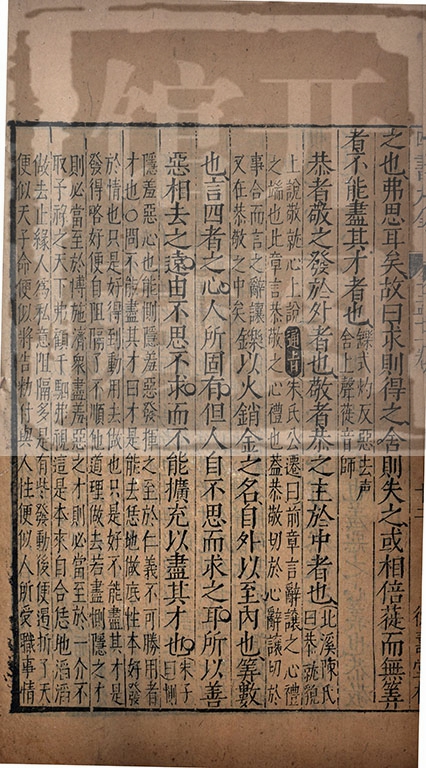 之也弗思耳矣故曰求則得之舍則失之或相倍蓰而無筭
者不能盡其才者也
鑠式灼反惡去声
舍上聲蓰音師
恭者敬之發於外者也敬者恭之主於中者也
北溪陳氏
曰恭就貌
上說敬就心上說
通旨
朱氏公遷曰前章言辭讓之心禮
之端也此章言恭敬之心禮也盖恭敬切於心辭讓切於
事合而言之辭讓
又在恭敬之中矣
鑠以火銷金之名自外以至内也筭數
也言四者之心人所固有但人自不思而求之耳所以善
惡相去之遠由不思不求而不能擴充以盡其才也
朱子
曰惻
隱羞惡心也能惻隱羞惡發揮之至於仁義不可勝用者
才也○問不能盡其才曰才是能去恁地做底性本好發
於情也只是好得到動用去做也只是好不能盡其才是
發得略好便自阻隔了不順他道理做去若盡惻隱之才
則必當至於博施濟衆盡羞惡之才則必當至於一介不
取予祿之天下弗顧千駟弗視這是本來自合恁地滔滔
做去止緣人為私意阻隔多是有些發動後便遏折了天
便似天子命便似將告勑付與人性便似人所受職事情